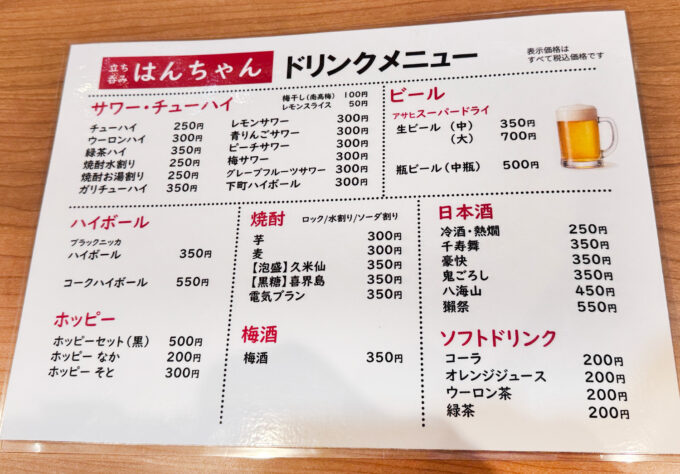 立ち呑み はんちゃん ドリンクメニュー
表示価格は
すべて税込価格です
サワー・チューハイ
梅干し(南高梅) 100円
レモンスライス 50円
チューハイ 250円
ウーロンハイ 300円
緑茶ハイ 350円
焼酎水割り 250円
焼酎お湯割り 250円
ガリチューハイ 350円
レモンサワー 300円
青りんごサワー 300円
ピーチサワー 300円
梅サワー 300円
グレープフルーツサワー 300円
下町ハイボール 300円
ビール
アサヒスーパードライ
生ビール (中) 350円
(大) 700円
瓶ビール(中瓶) 500円
ハイボール
ブラックニッカ
ハイボール 350円
コークハイボール 550円
ホッピー
ホッピーセット(黒) 500円
ホッピー なか 200円
ホッピー そと 300円
焼酎 ロック/水割り/ソーダ割り
芋 300円
麦 300円
【泡盛】久米仙 350円
【黒糖】喜界島 350円
電気ブラン 350円
梅酒
梅酒 350円
日本酒
冷酒・熱燗 250円
千寿舞 350円
豪快 350円
鬼ごろし 350円
八海山 450円
獺祭 550円
ソフトドリンク
コーラ 200円
オレンジジュース 200円
ウーロン茶 200円
緑茶 200円